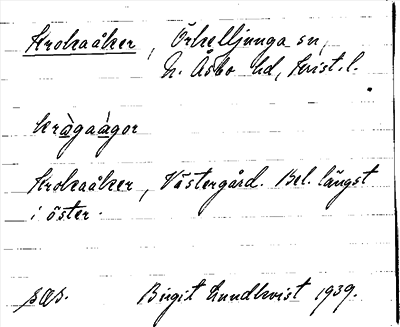 Krokaåker, Örkelljunga sn,
N. Åsbo hd, Krist. l.
kràgaàgor
Krokaåker, Västergård. Bel. längst
i öster.
Birgit Lundkvist 1939.